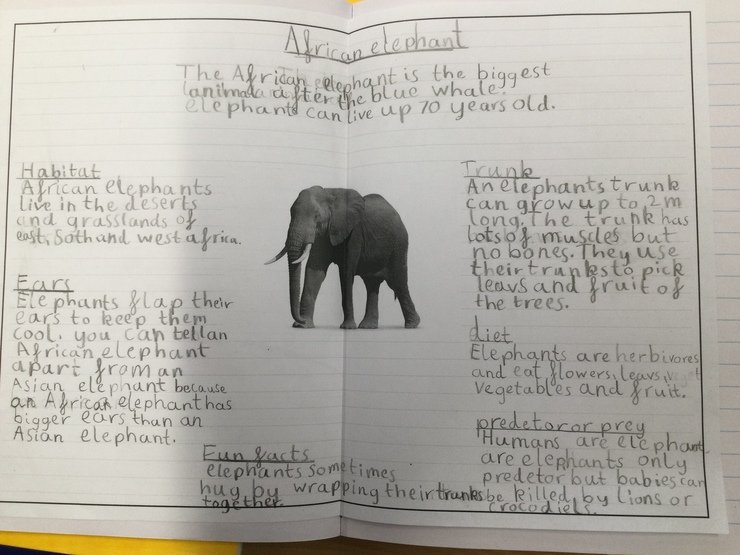 African elephant
The African elephant is the biggest
animal after the blue whale.
elephants can live up 70 years old.
Habitat
African elephants
live in the deserts
and grasslands of
east, Soth and west africa.
Ears
Elephants flap their
ears to keep them
cool. you can tell an
African elephant
apart from an
Asian elephant because
an African elephant has
bigger ears than an
Asian elephant.
Fun facts
elephants sometimes
hug by wrapping their trunks
together.
Trunk
An elephants trunk
can grow up to 2m
long. The trunk has
lots of muscles but
no bones. They use
their trunks to pick
leavs and fruit of
the trees.
diet
Elephants are herbivores
and eat flowers, leavs,
vegetables and fruit.
predetor or prey
Humans are elephant
are elephants only
predetor but babies can
be killed by Lions or
crocodiels.